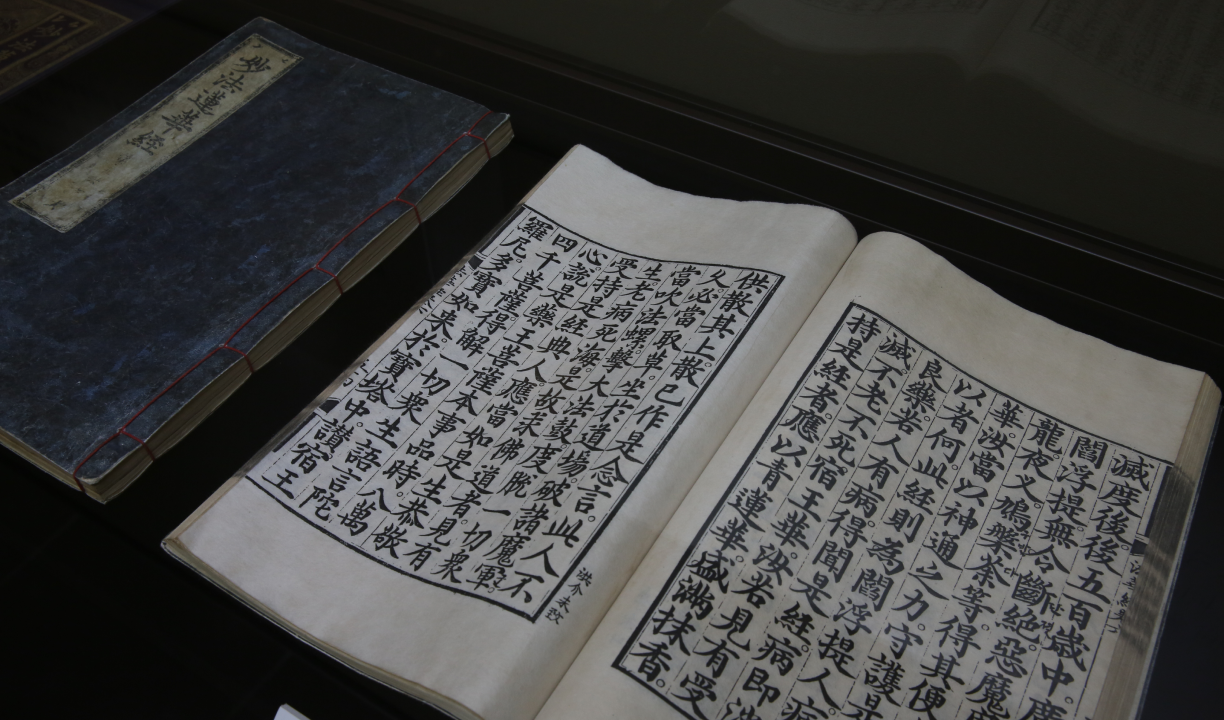 妙法蓮華経
滅度後後五百歳中。廣
閻浮提無令斷絶惡魔
龍夜叉鳩槃荼等。得其便
華。汝當以神通之力。守護是
以者何。此経則為閻浮提人。病
良藥。若人有病。得聞是経。病即消
滅。不老不死。宿王華。汝若見有受
持是経者。應以青蓮華。盛滿抹香。
供散其上。散已作是念言。此人不
久必當取草。坐於道場。破諸魔軍。
當吹法螺。擊大法鼓。度脫一切衆
生。老病死海。是故求佛道者。見有
受持是経典人。應當如是。生恭敬
心。說是藥王菩薩本事品時。八萬
四千菩薩。得解一切衆生語言陀
羅尼。多寶如来。於寶塔中。讃宿王